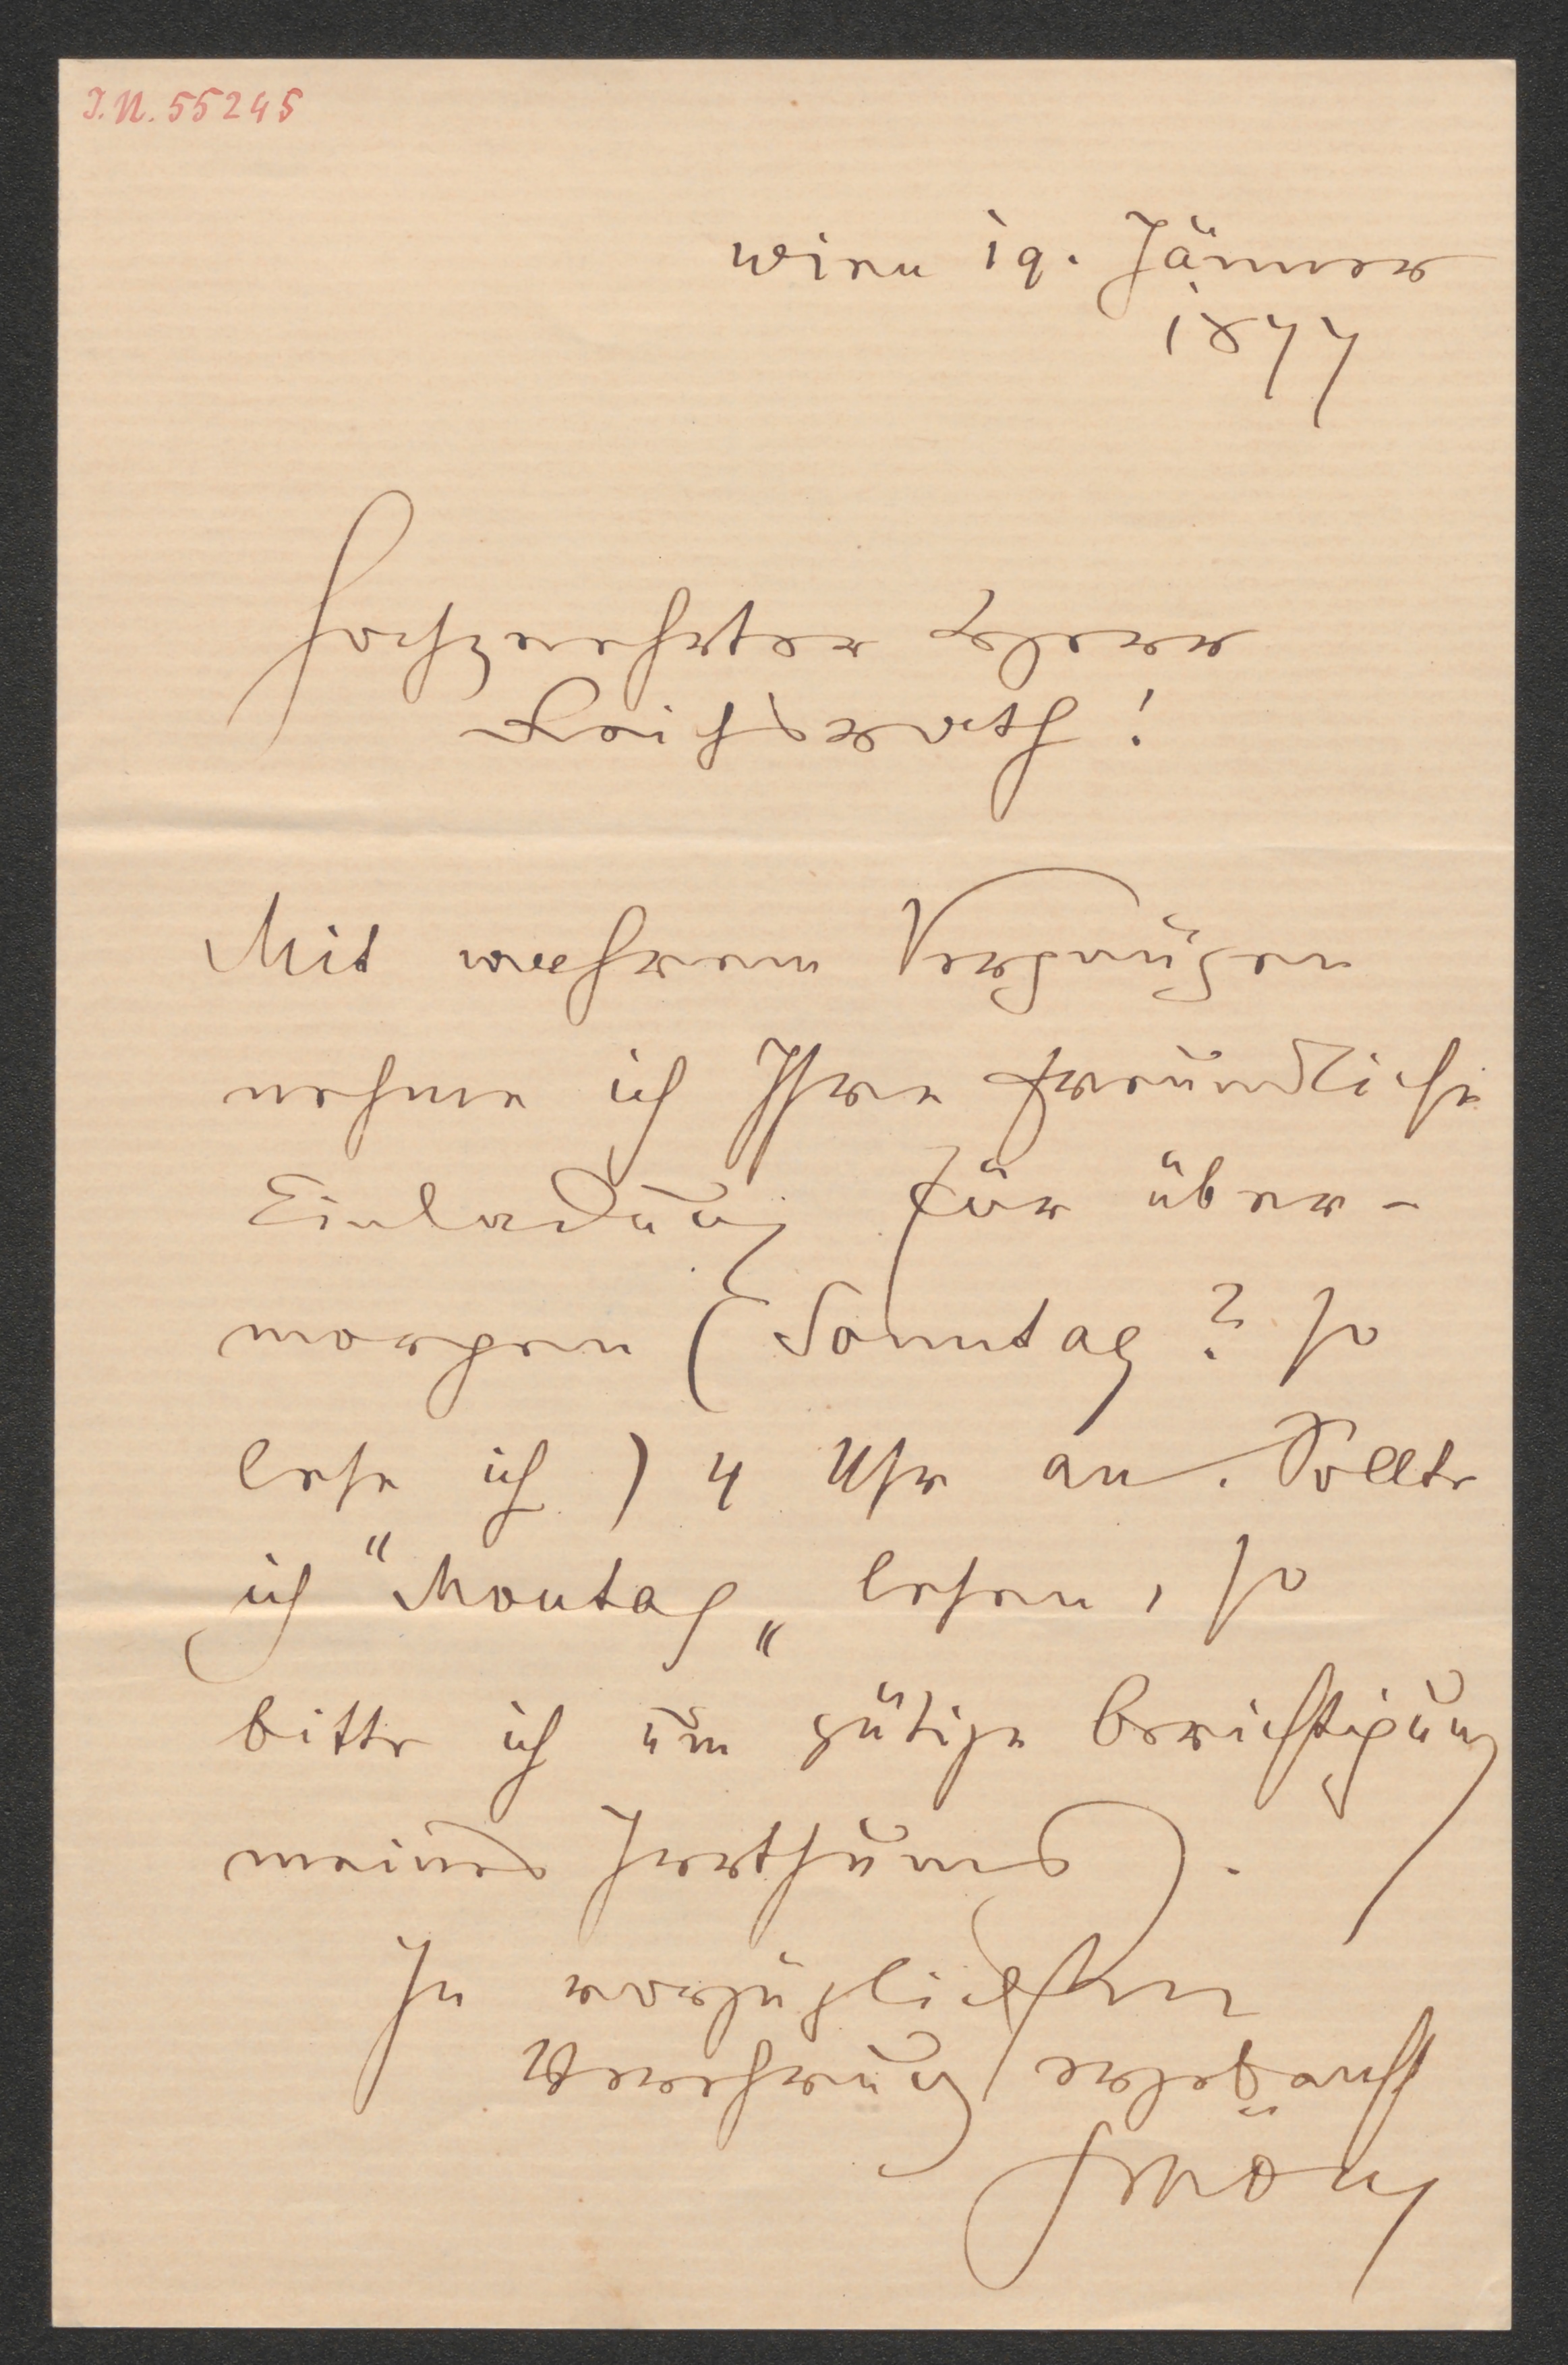 I.N. 55245
Wien 19. Jänner
1877
Hochverehrter Herr
Reichsrath!
Mit wahrem Vergnügen
nehme ich Ihre freundliche
Einladung für über-
morgen (Sonntag? so
lese ich) 4 Uhr an. Sollte
ich "Montag" lesen, so
bitte ich um gütige Berichtigung
meines Irrthums.
In vorzüglichster
Verehrung